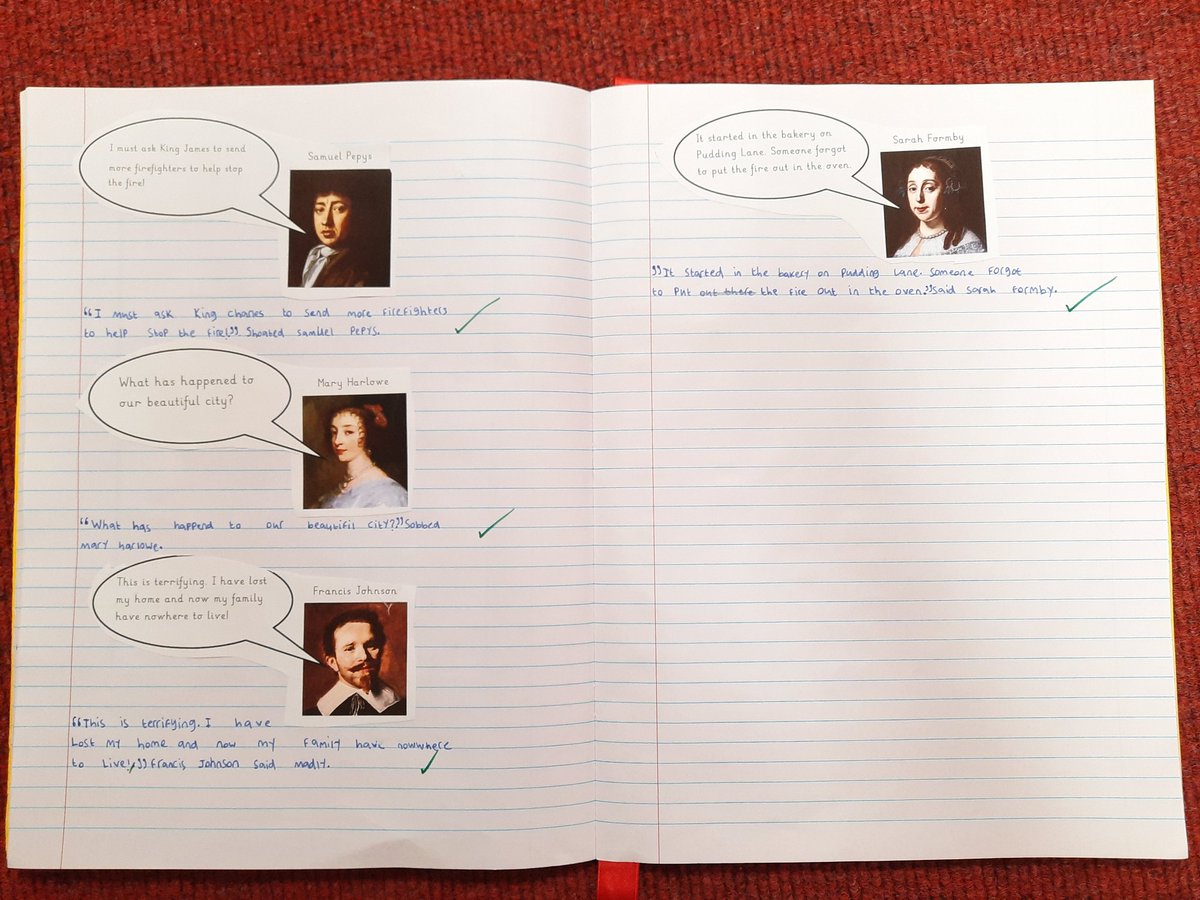 I must ask King James to send
more firefighters to help stop
the fire!
Samuel Pepys
“I must ask King Charles to send more firefighters
to help stop the fire!” Shoated samuel Pepys.
What has happened to
our beautiful city?
Mary Harlowe
“What has happend to our beautifil city?” Sobbed
mary harlowe.
This is terrifying. I have lost
my home and now my family
have nowhere to live!
Francis Johnson
“This is terrifying. I have
Lost my home and now my family have nowwhere
to Live!” Francis Johnson said madly.
It started in the bakery on
Pudding Lane. Someone forgot
to put the fire out in the oven.
Sarah Formby
”It started in the bakery on pudding Lane. Someone forgot
to put out there the fire out in the oven.” Said Sarah formby.